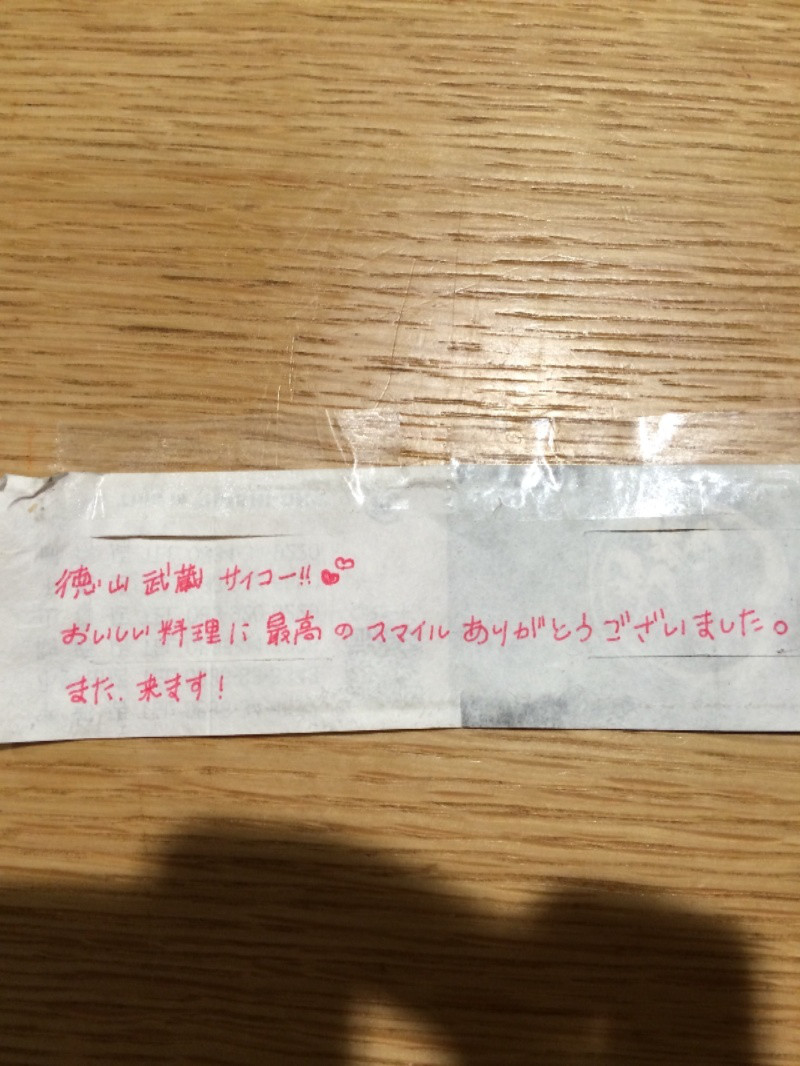 徳山武蔵 サイコー!!
おいしい料理に最高のスマイルありがとうございました。
また、来ます！